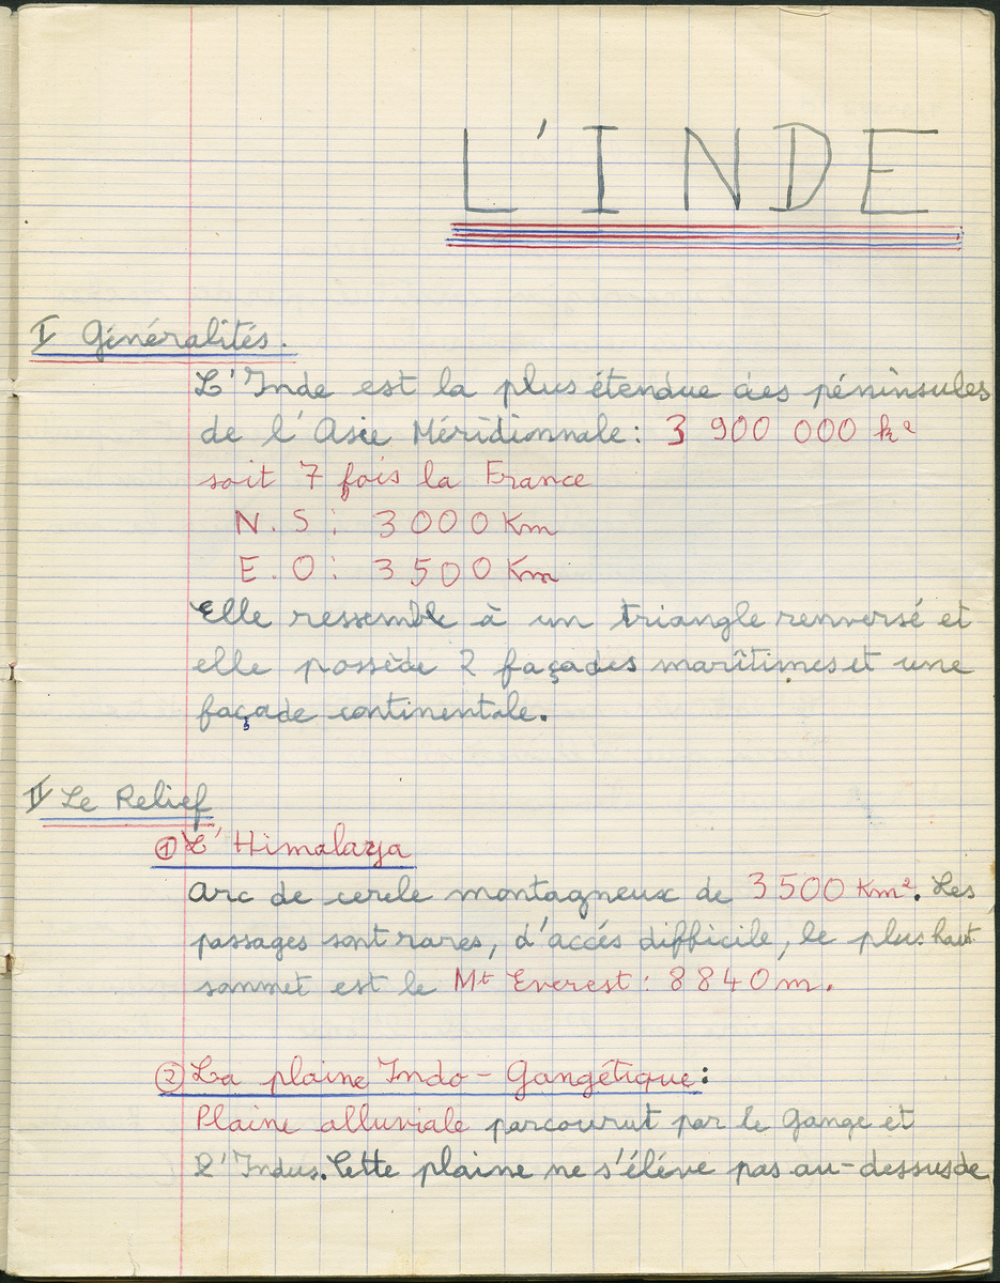 L'INDE
I Généralités.
L'Inde est la plus étendue des péninsules
de l'Asie Méridionnale: 3 900 000 k²
soit 7 fois la France
N.S: 3000 Km
E.O: 3500 Km
Elle ressemble à un triangle renversé et
elle possède 2 façades marîtimes et une
façade continentale.
II Le Relief
① L'Himalaya
Arc de cercle montagneux de 3500 Km². Les
passages sont rares, d'accés difficile, le plus haut
sommet est le Mt Everest: 8840m.
② La plaine Indo-Gangétique:
Plaine alluviale parcourut par le Gange et
l'Indus. Cette plaine ne s'éléve pas au-dessus de